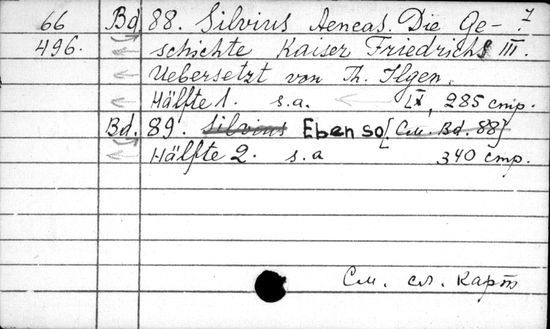 7
66 Bd. 88. Silvius Aeneas. Die Ge-
496. schichte Kaiser Friedrichs III.
Uebersetzt von Th. Ilgen.
Hälfte 1. s.a. IX, 285 стр.
Bd. 89. Silvius Ebenso [См. Bd. 88]
Hälfte 2. s.a 340 стр.
См. сл. карт